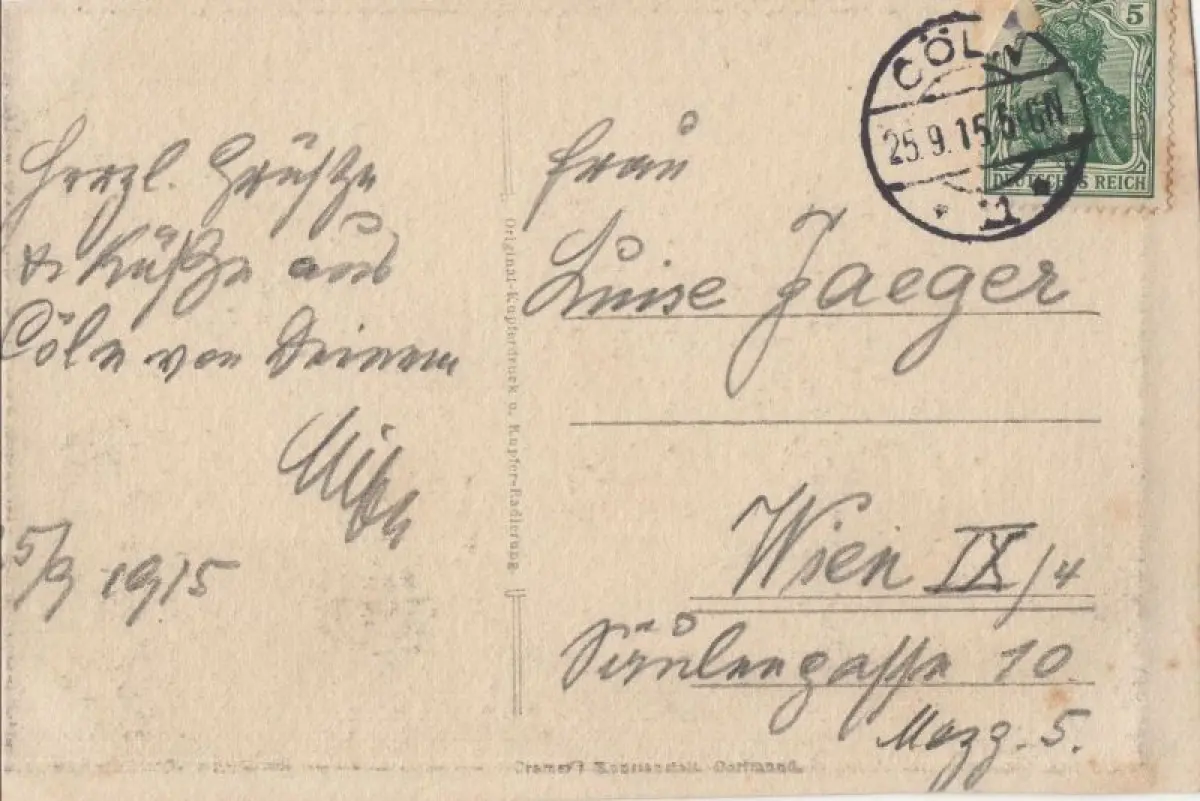 Herzl. Grüße
& Küße aus
Cöln von Deinem
5/9 1915
Original-Kupferdruck u. Kupfer-Radierung
CÖLN
25.9.15
1
5
DEUTSCHES REICH
Frau
Luise Jaeger
Wien IX/4
Säulengasse 10
Mezz. 5.
Cramers Kunstanstalt Dortmund